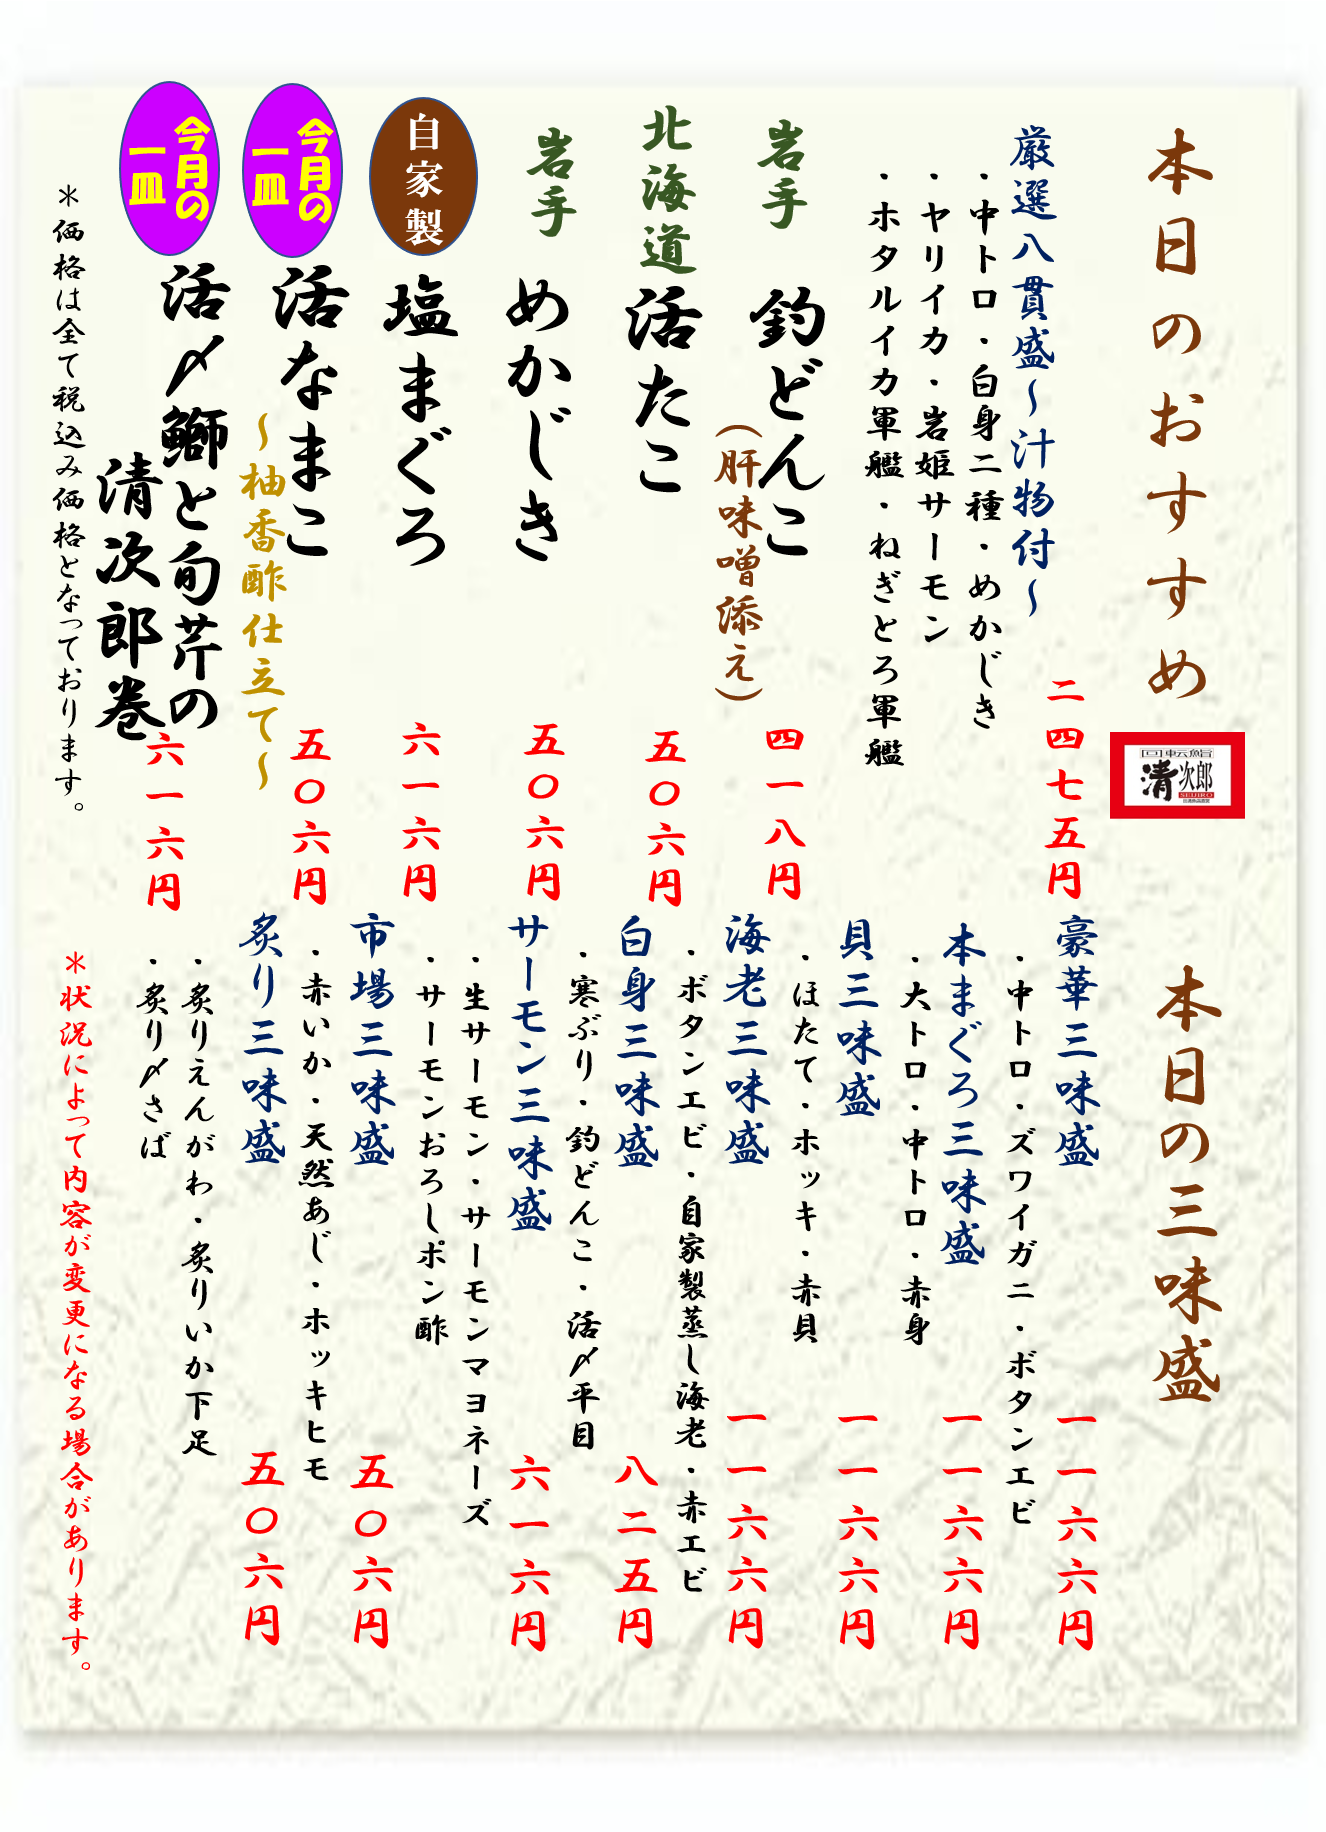 本日のおすすめ
回転鮨
清次郎
SEIJIRO
厳選八貫盛～汁物付～
二四七五円
・中トロ・白身二種・めかじき
・ヤリイカ・岩姫サーモン
・ホタルイカ軍艦・ねぎとろ軍艦
岩手
釣どんこ
(肝味噌添え)
四一八円
北海道
活たこ
五〇六円
岩手
めかじき
五〇六円
自家製
塩まぐろ
六一六円
今月の
一皿
活なまこ
～柚香酢仕立て～
五〇六円
今月の
一皿
活〆鰤と旬芹の
清次郎巻
六一六円
＊価格は全て税込み価格となっております。
本日の三味盛
豪華三味盛
一一六六円
・中トロ・ズワイガニ・ボタンエビ
本まぐろ三味盛
一一六六円
・大トロ・中トロ・赤身
貝三味盛
一一六六円
・ほたて・ホッキ・赤貝
海老三味盛
一一六六円
・ボタンエビ・自家製蒸し海老・赤エビ
白身三味盛
八二五円
・寒ぶり・釣どんこ・活〆平目
サーモン三味盛
六一六円
・生サーモン・サーモンマヨネーズ
・サーモンおろしポン酢
市場三味盛
五〇六円
・赤いか・天然あじ・ホッキヒモ
炙り三味盛
五〇六円
・炙りえんがわ・炙りいか下足
・炙り〆さば
＊状況によって内容が変更になる場合があります。